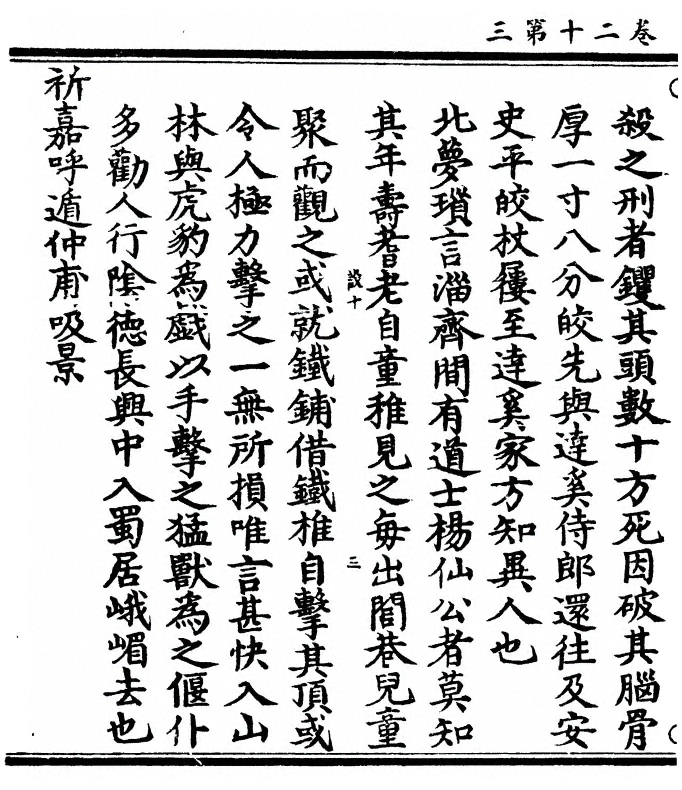 卷二十第三
殺之刑者钁其頭數十方死因破其腦骨
厚一寸八分皎先與達奚侍郎還往及安
史平皎杖屨至達奚家方知異人也
北夢瑣言淄齊間有道士楊仙公者莫知
其年壽耆老自童稚見之每出閭巷兒童
設十 三
聚而觀之或就鐵鋪借鐵椎自擊其頂或
令人極力擊之一無所損唯言甚快入山
林與虎豹為戲以手擊之猛獸為之偃仆
多勸人行陰德長興中入蜀居峨嵋去也
祈嘉呼遁仲甫吸景